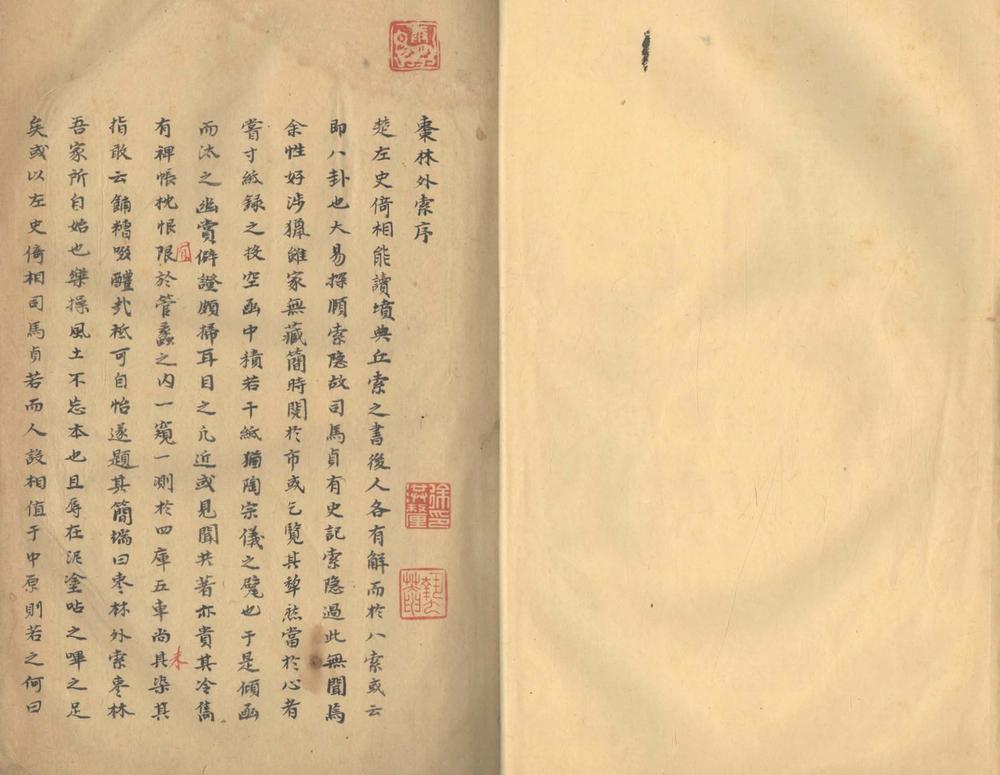 棗林外索序
楚左史倚相能讀墳典丘索之書後人各有解而於八索或云
即八卦也大易探賾索隐故司馬貞有史記索隐過此無聞焉
余性好涉獵雖家無藏簡時閱於市或乞覽其犂然當於心者
嘗寸紙録之投空函中積若干紙猶陶宗儀之甓也于是傾函
而汰之幽賞僻證頗掃耳目之凡近或見聞共著亦貴其冷雋
有裨帳枕恨限於管蠡之内一窺一測於四庫五車尚具染其
宜
未
指敢云餔糟啜醴哉祗可自怡遂題其簡端曰枣林外索枣林
吾家所自始也樂操風土不忘本也且辱在泥塗呫之嗶之足
矣或以左史倚相司馬貞若而人設相值于中原則若之何曰